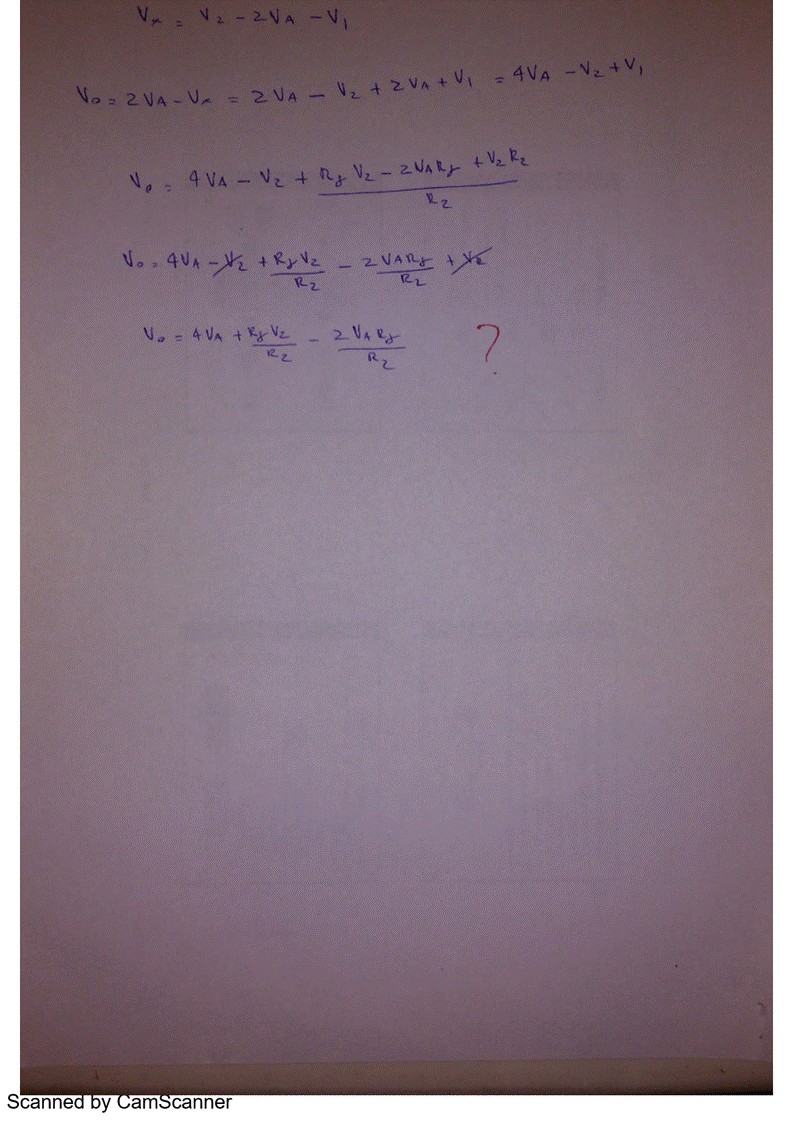 Vx = V2 - 2VA - V1
Vo = 2VA - Vx = 2VA - V2 + 2VA + V1 = 4VA - V2 + V1
Vo = 4VA - V2 + (Rf V2 - 2VARf + V2 R2) / R2
Vo = 4VA - V2 + Rf V2 / R2 - 2VARf / R2 + V2
Vo = 4VA + Rf V2 / R2 - 2VA Rf / R2 ?
Scanned by CamScanner